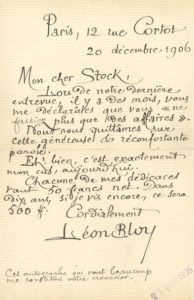 Paris, 12 rue Cortot
20 décembre 1906
Mon cher Stock,
Lors de notre dernière
entrevue, il y a des mois, vous
me déclarâtes que vous « ne
faisiez plus que des affaires ».
Nous nous quittâmes sur
cette généreuse & réconfortante
parole.
Eh! bien, c'est exactement
mon cas, aujourd'hui.
Chacune de mes dédicaces
vaut 50 francs net. Dans
dix ans, si je vis encore, ce sera
500 f.
Cordialement
Léon Bloy
Cet autographe qui vaut beaucoup
me constitue votre créancier.